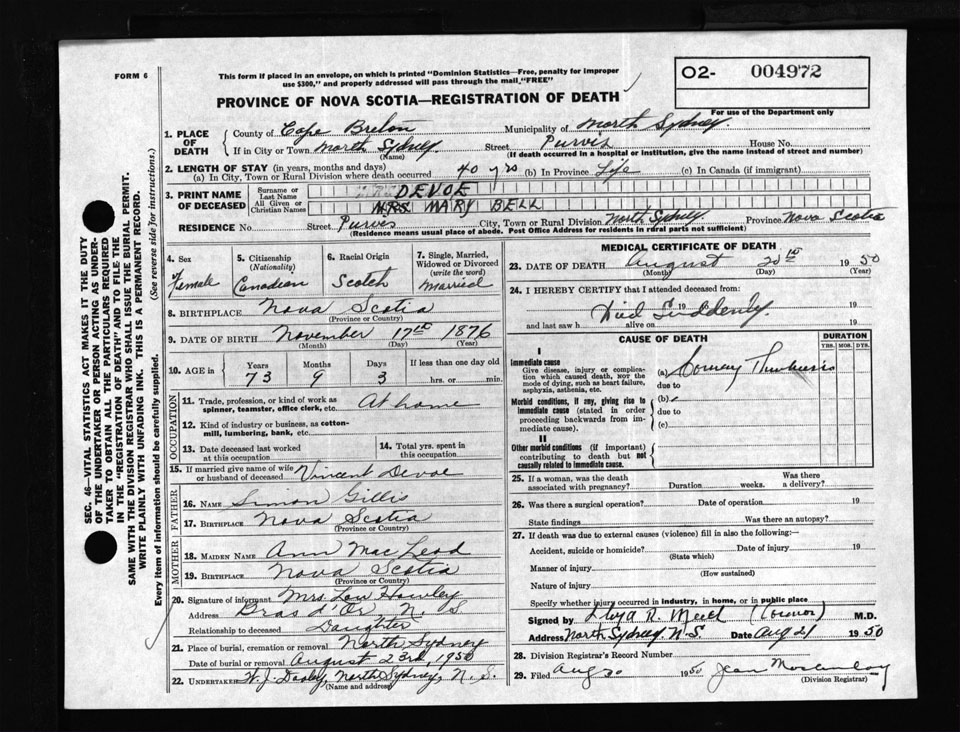 FORM 6
This form if placed in an envelope, on which is printed "Dominion Statistics—Free, penalty for improper
use $300," and properly addressed will pass through the mail "FREE"
O2- 004972
For use of the Department only
PROVINCE OF NOVA SCOTIA—REGISTRATION OF DEATH
SEC. 46—VITAL STATISTICS ACT MAKES IT THE DUTY
OF THE UNDERTAKER OR PERSON ACTING AS UNDER-
TAKER TO OBTAIN ALL THE PARTICULARS REQUIRED
IN THE "REGISTRATION OF DEATH" AND TO FILE THE
SAME WITH THE DIVISION REGISTRAR WHO SHALL ISSUE THE BURIAL PERMIT.
WRITE PLAINLY WITH UNFADING INK. THIS IS A PERMANENT RECORD.
Every item of information should be carefully supplied. (See reverse side for instructions.)
1. PLACE OF DEATH
County of Cape Breton Municipality of North Sydney.
If in City or Town North Sydney. Street Purvis House No.
(Name) (If death occurred in a hospital or institution, give the name instead of street and number)
2. LENGTH OF STAY (in years, months and days)
(a) In City, Town or Rural Division where death occurred 40 yrs (b) In Province Life (c) In Canada (if immigrant)
3. PRINT NAME OF DECEASED
Surname or Last Name DEVOE
All Given or Christian Names MRS MARY BELL
RESIDENCE No. Street Purvis City, Town or Rural Division North Sydney. Province Nova Scotia
(Residence means usual place of abode. Post Office Address for residents in rural parts not sufficient)
4. Sex
Female
5. Citizenship
(Nationality)
Canadian
6. Racial Origin
Scotch
7. Single, Married,
Widowed or Divorced
(write the word)
Married
8. BIRTHPLACE Nova Scotia
(Province or Country)
9. DATE OF BIRTH November 17th 1876
(Month) (Day) (Year)
10. AGE in
Years Months Days If less than one day old
73 9 3 hrs. or min.
OCCUPATION
11. Trade, profession, or kind of work as
spinner, teamster, office clerk, etc. At home
12. Kind of industry or business, as cotton-
mill, lumbering, bank, etc.
13. Date deceased last worked
at this occupation
14. Total yrs. spent in
this occupation
15. If married give name of wife
or husband of deceased Vincent Devoe
FATHER
16. NAME Simon Gillis
17. BIRTHPLACE Nova Scotia
(Province or Country)
MOTHER
18. MAIDEN NAME Ann Mac Leod
19. BIRTHPLACE Nova Scotia
(Province or Country)
20. Signature of informant Mrs. Lou Hawley
Address Bras d'Or, N. S
Relationship to deceased Daughter
21. Place of burial, cremation or removal North Sydney
Date of burial or removal August 23rd, 1950
22. UNDERTAKER W. J. Dooley, North Sydney, N. S.
(Name and address)
MEDICAL CERTIFICATE OF DEATH
23. DATE OF DEATH August 20th 1950
(Month) (Day) (Year)
24. I HEREBY CERTIFY that I attended deceased from:
Died Suddenly. 19
and last saw h alive on 19
CAUSE OF DEATH
DURATION
YRS. MOS. DYS.
I
Immediate cause
Give disease, injury or complica-
tion which caused death, not the
mode of dying, such as heart failure,
asphyxia, asthenia, etc.
(a) Coronary Thrombosis
due to
Morbid conditions, if any, giving rise to
immediate cause (stated in order
proceeding backwards from im-
mediate cause).
(b)
due to
(c)
II
Other morbid conditions (if important)
contributing to death but not
causally related to immediate cause.
25. If a woman, was the death
associated with pregnancy? Duration weeks. Was there
a delivery?
26. Was there a surgical operation? Date of operation 19
State findings Was there an autopsy?
27. If death was due to external causes (violence) fill in also the following:—
Accident, suicide or homicide? Date of injury 19
(State which)
Manner of injury
(How sustained)
Nature of injury
Specify whether injury occurred in industry, in home, or in public place
Signed by R. (Coroner) M.D.
Address North Sydney N.S. Date Aug 21 1950
28. Division Registrar's Record Number
29. Filed Aug 30 1950 Jean
(Division Registrar)